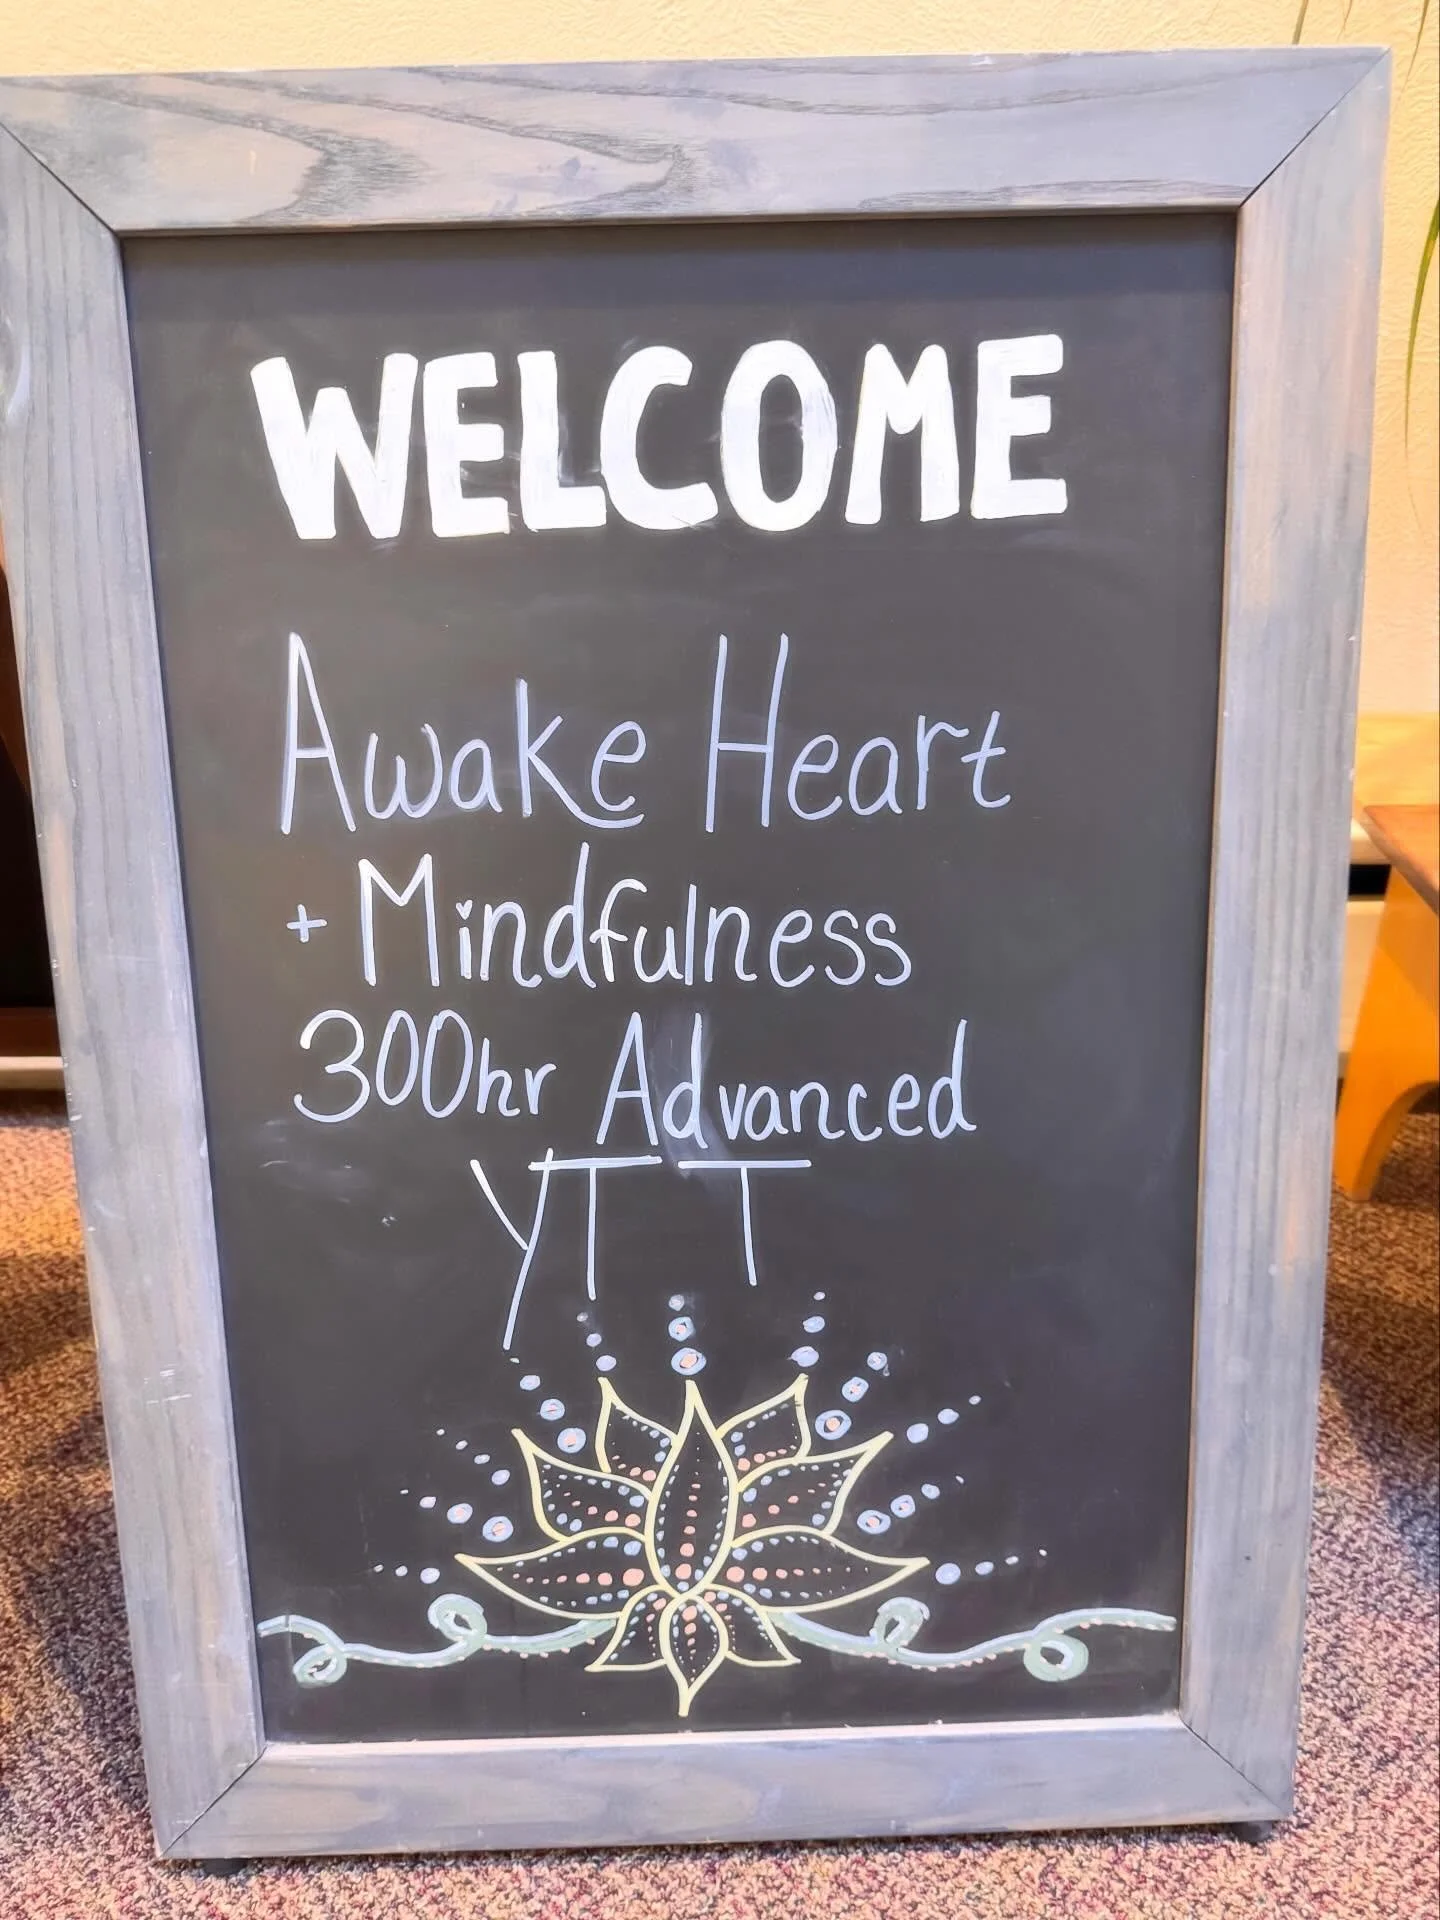 WELCOME
Awake Heart
+ Mindfulness
300hr Advanced
YTT